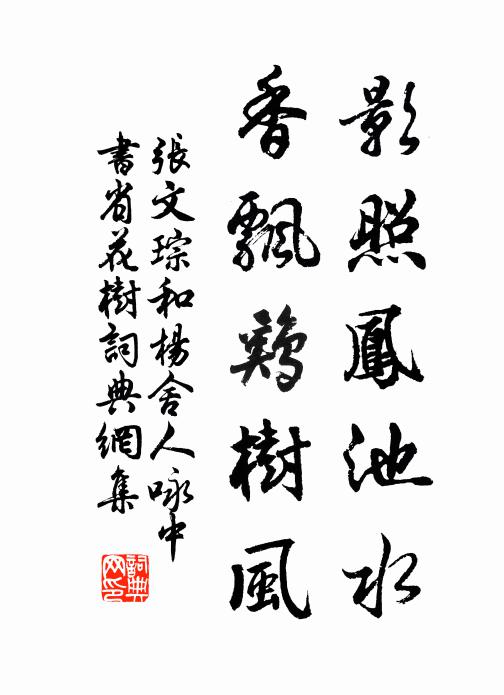 影照鳳池水
香飄鷄樹風
張文琮和楊舍人咏中
書省花樹詞典網集
詞典
网印